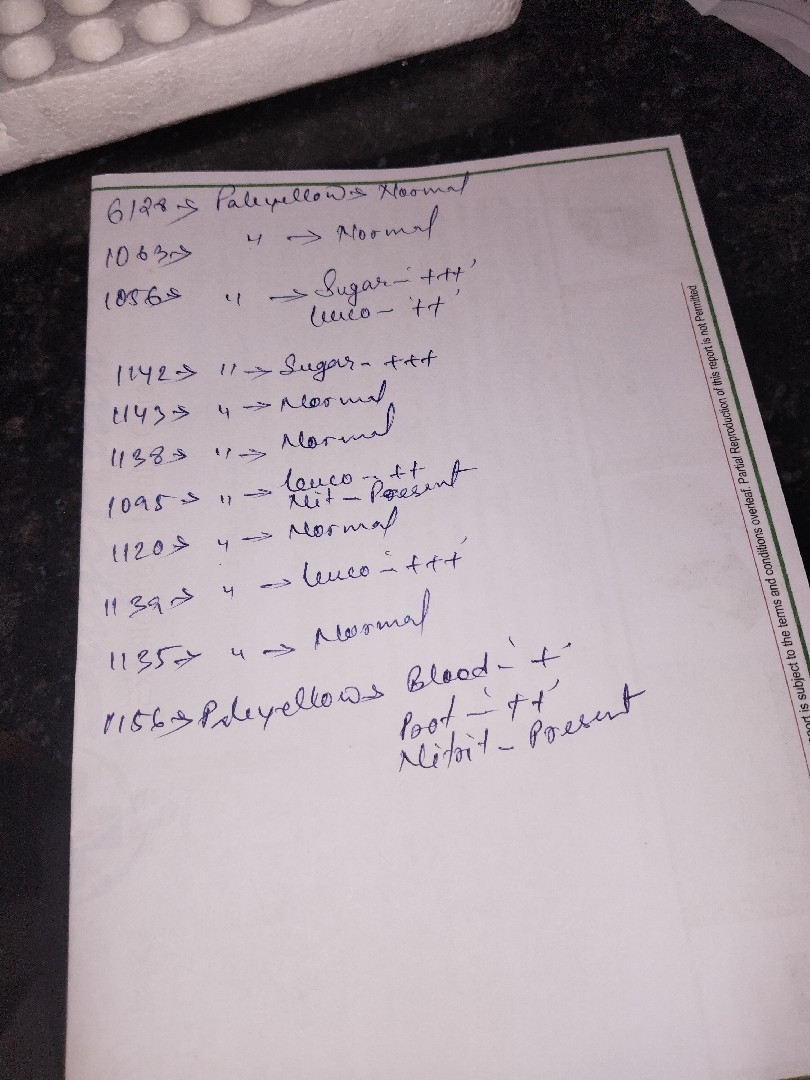 6128→ Paleyellow→ Normal
1063→ " → Normal
1056→ " → Sugar - +++
leuco - ++
1142→ " → Sugar - +++
1143→ " → Normal
1138→ " → Normal
1095→ " → leuco - ++
Nit - Present
1120→ " → Normal
1139→ " → leuco - +++
1135→ " → Normal
1156→ Paleyellow→ Blood - +
Prot - ++
Nitrit - Present
is subject to the terms and conditions overleaf. Partial Reproduction of this report is not Permitted